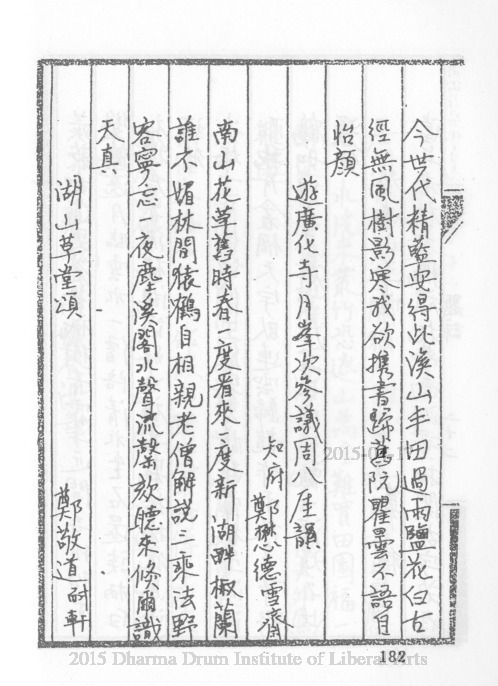 今世代精藍安得此溪山半田過雨鹽花白古
徑無風樹影寒我欲携書歸舊阮瞿曇不語自
怡顏
遊廣化寺月峯次參議周八厓韻
知府鄭懋德雪齋
南山花草舊時春一度看來一度新湖畔椒蘭
誰不媚林間猿鶴自相親老僧解說三乘法野
客寧忘一夜塵溪閣水聲流磬欬聽來修爾識
天真
湖山草堂頌
鄭敬道耐軒
182
2015 Dharma Drum Institute of Liberal Arts